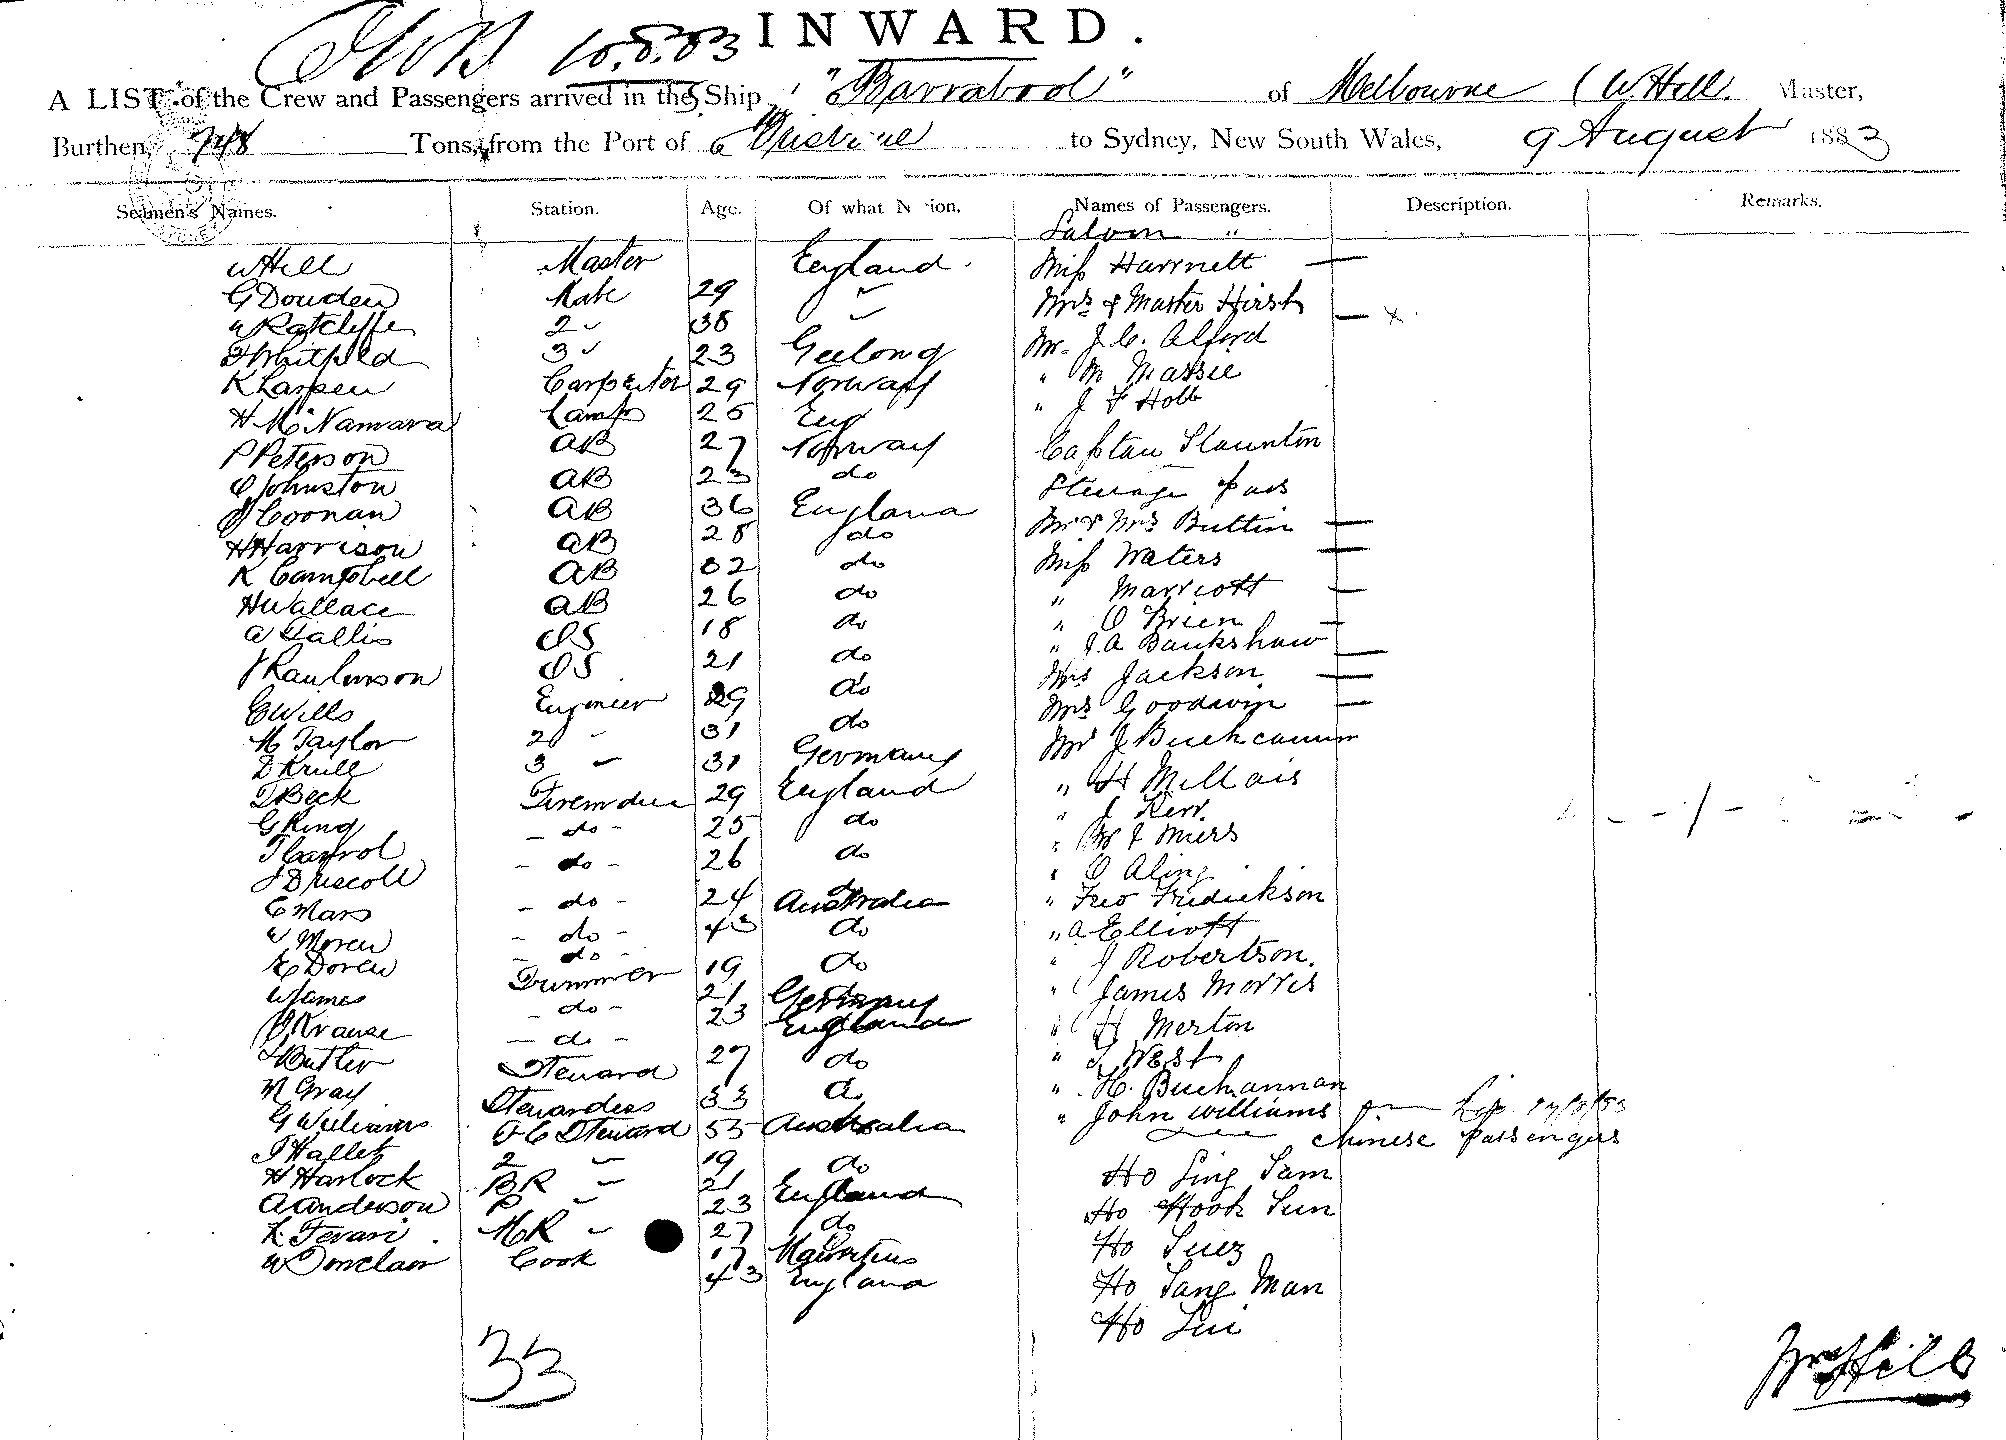 INWARD.
10.8.83
A LIST of the Crew and Passengers arrived in the Ship "Barrabool" of Melbourne W Hill Master,
Burthen, 748 Tons, from the Port of Brisbane to Sydney, New South Wales, 9 August 1883
Seamen's Names. Station. Age. Of what Nation. Names of Passengers. Description. Remarks.
Saloon "
W Hill Master England. Miss Harrnett
G Douden Mate 29 " Mrs & Master Hirst
W Ratcliffe 2 " 38 " Mr. J. C. Alford
H Whitfeld 3 " 23 Geelong " M Massie
K Larsen Carpenter 29 Norway " J F Holt
H McNamara Lamps 26 Eng Captan Staunton
P Peterson AB 27 Norway Steerage pass
O Johnston AB 23 do Mr & Mrs Buttin
J Coonan AB 36 England Miss Waters
H Harrison AB 28 do " Marriott
K Campbell AB 32 do " O Brien
H Wallace AB 26 do " J. A Bankshaw
A Gallis OS 18 do Mrs Jackson
J Raulinson OS 21 do Mrs Goodwin
C Wills Engineer 29 do Mr J Buchcannan
M Taylor 2 " 31 do " H Millais
D Krull 3 " 31 Germany " J Kerr
T Beck Firemdn 29 England " W J Miers
G King - do - 25 do " O Aling
T Carrol - do - 26 do " Fredickson
J Driscoll - do - 24 Australia " A Elliott
C Mars - do - 43 do " J Robertson.
W Moren - do - 19 do " James Morris
E Doren Trimmer 21 Germany " H Merton
W James - do - 23 England " T West
J Krause - do - 27 do " H. Buchannan
Butler Steward 33 do " John Williams
M Gray Stewardess 55 Australia Chinese Passengers
G Williams F C Steward 19 do Ho Sing Sam
T Hallet 2 " 21 England Ho Hook Sun
H Harlock BR " 23 do Ho Suey
A Anderson P " 27 Mauritius Ho Sang Man
K. Tevari MR " 17 England Ho Sui
W Donclair Cook 43
33
Wm Hill